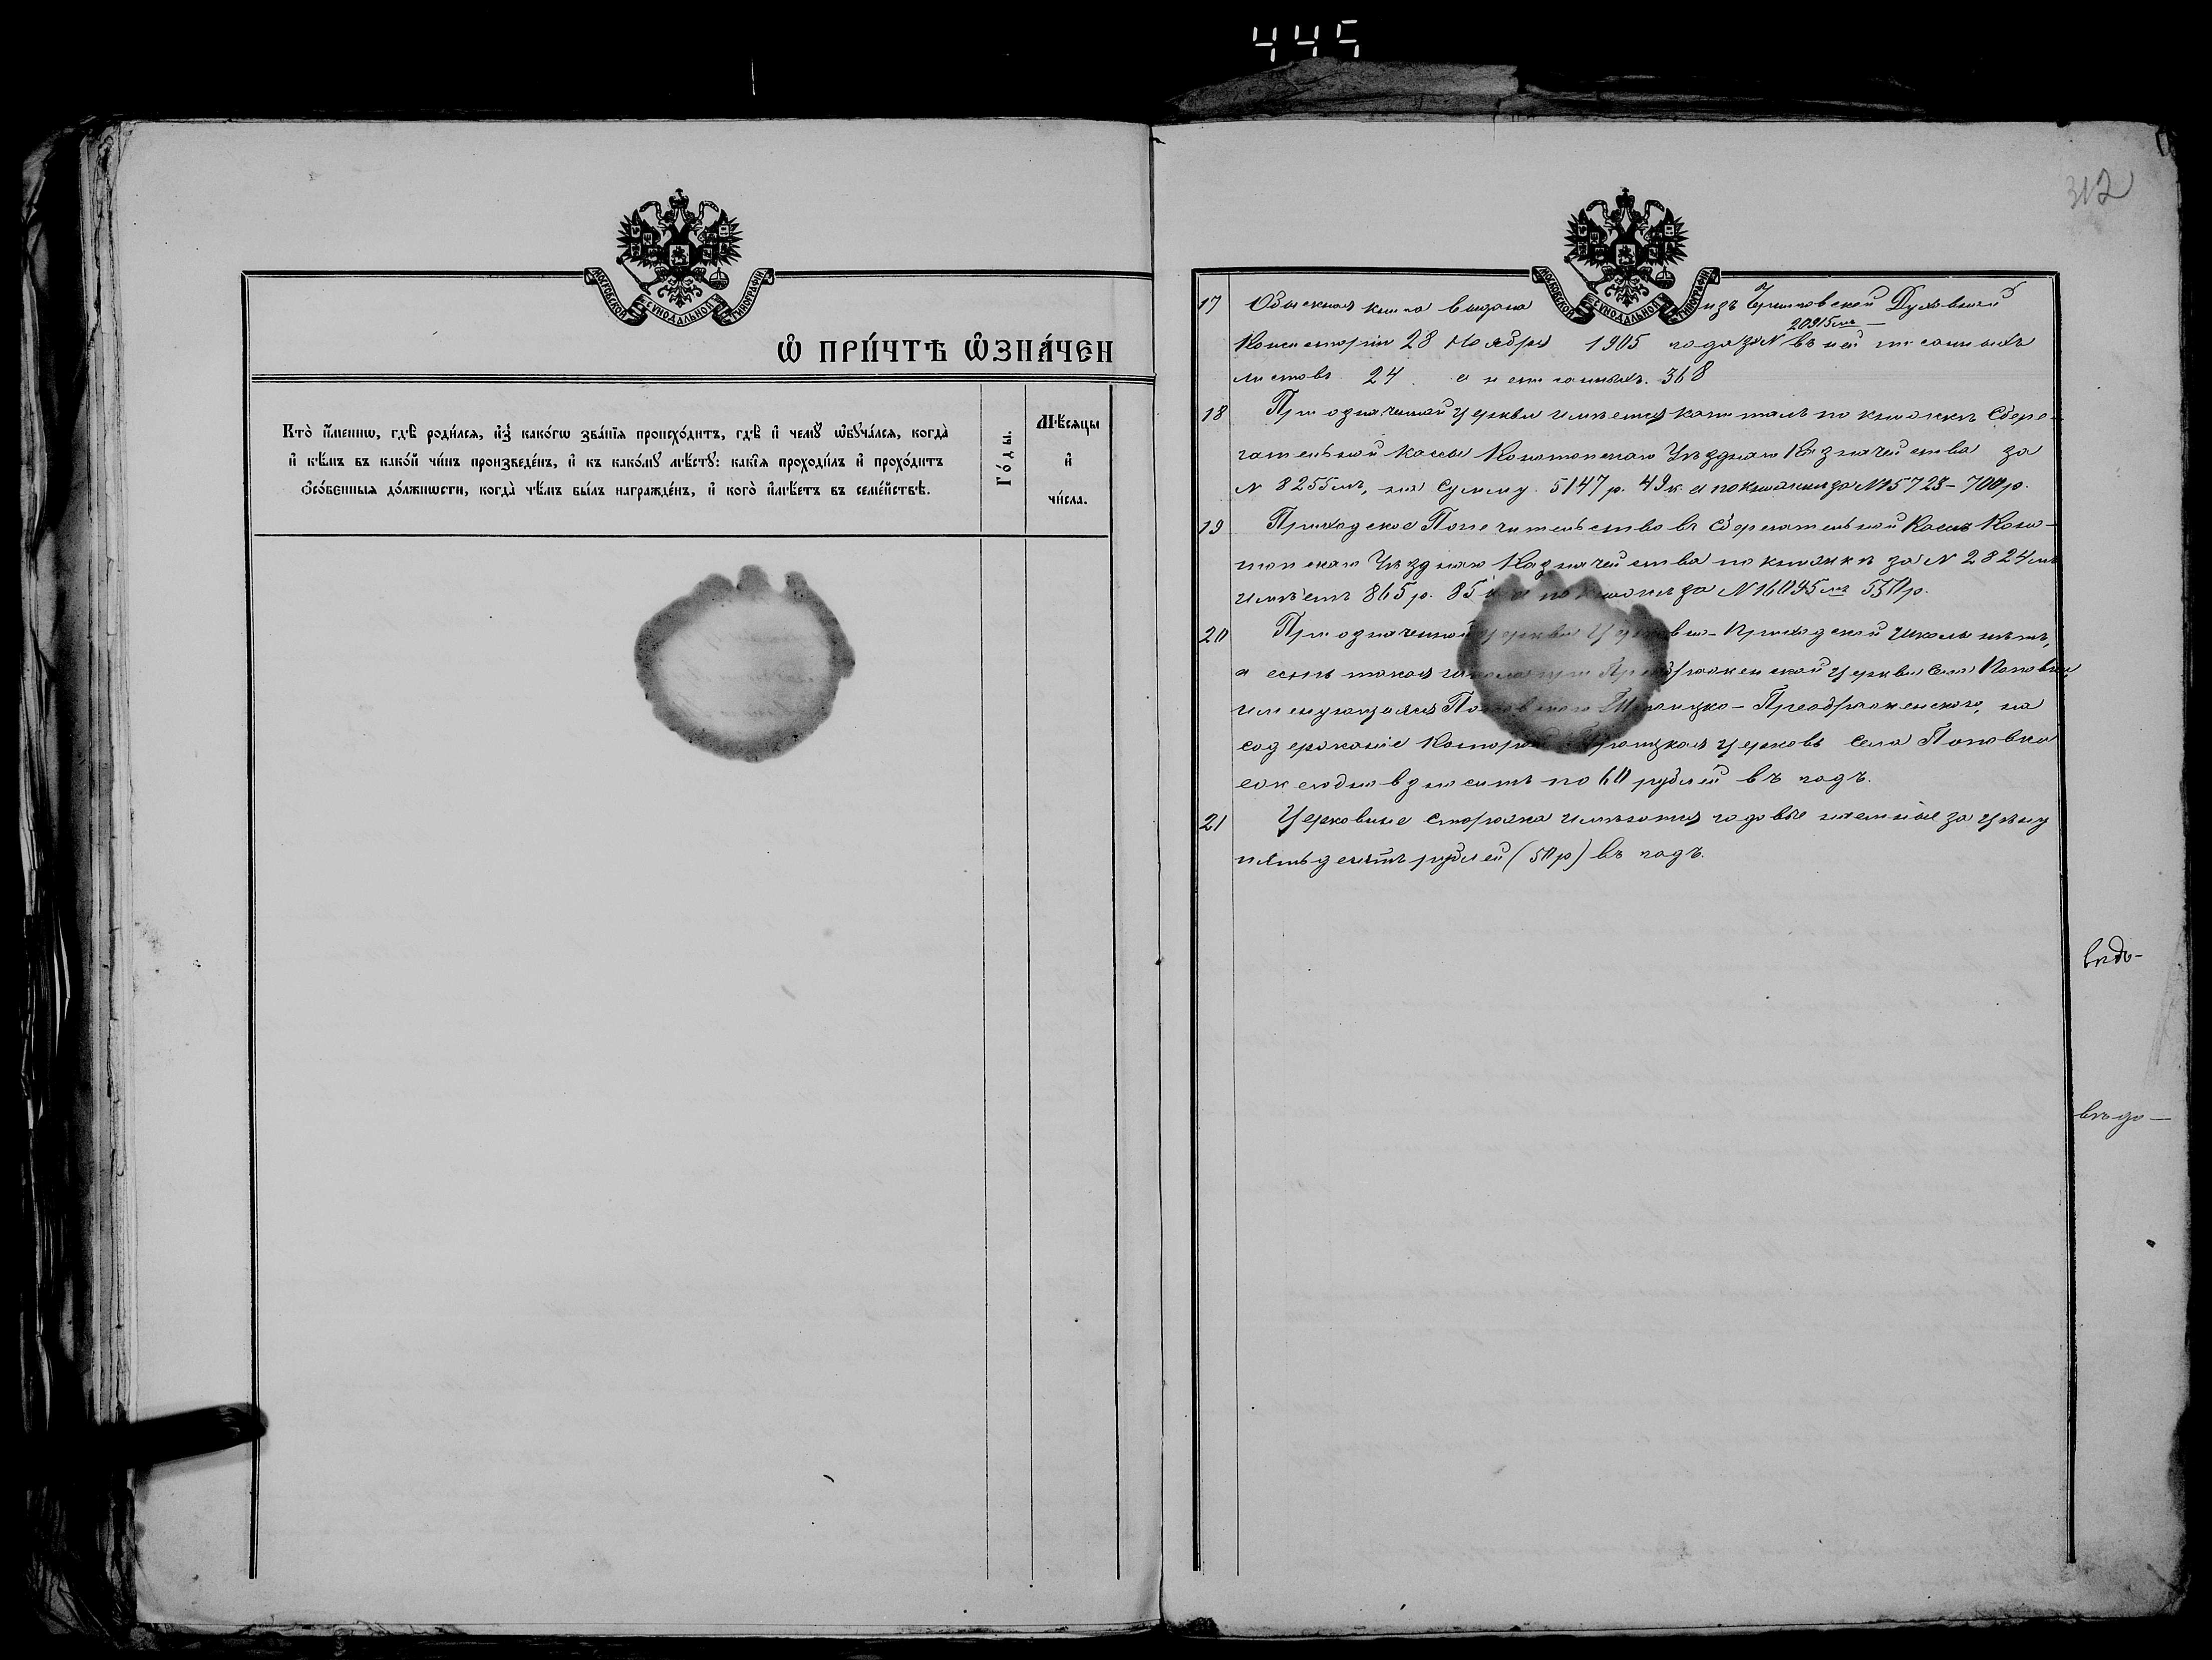 445
312
МОСКОВСКОЙ СѴНОДАЛЬНОЙ ТИПОГРАФІИ
Ѽ ПРИ́ЧТѢ Ѽ҆ЗНА́ЧЕН
Кто̀ и҆́менно, гдѣ̀ роди́лся, и҆з̾ како́гѡ зва́нїя происхо́дитъ, гдѣ̀ и҆ чемꙋ̀ ѡ҆бꙋча́лся, когда̀
и҆ кѣ́мъ въ како́й чи́нъ произведе́нъ, и҆ къ како́мꙋ мѣ́стꙋ: какі̑я проходи́лъ и҆ прохо́дитъ
ѻ҆со́бенныя до́лжнѡсти, когда̀ чѣ́мъ бы́лъ награжде́нъ, и҆ кого̀ и҆мѣ́етъ въ семе́йствѣ.
Го́ды.
Мѣ́сяцы
и҆
чи́сла.
МОСКОВСКОЙ СѴНОДАЛЬНОЙ ТИПОГРАФІИ
17 Обыскная книга выдана изъ Черниговской Духовной
20915мъ
Консисторіи 28 Ноября 1905 года за № въ ней писанныхъ
листовъ 24 а неписанныхъ. 368
18 При означенной Церкви имѣется капиталъ по книжкѣ Сбере-
гательной Кассы Конотопскаго Уѣзднаго Казначейства за
№ 8255мъ, на Сумму 5147 р. 49 к и по книжки за №15728 - 700 р.
19 Приходское Попечительство въ Сберегательной Кассѣ Коно-
топскаго Уѣзднаго Казначейства по книжкѣ за № 2824мъ
имѣетъ 865 р. 85 к и по книжкѣ за №16095мъ 550 р.
20 При означенной Церкви Церковно-Приходской школы нѣтъ,
а есть такая школа при Преображенской Церкви Села Поповки,
именующаяся Поповскою Троицко-Преображенскою, на
содержаніе Которой Троицкая Церковь Села Поповки
ежегодно вноситъ по 60 рублей въ годъ.
21 Церковные сторожа имѣются годовые наемные за цѣну
пятьдесятъ рублей (50 р) въ годъ.
вѣдо-
вѣдо-